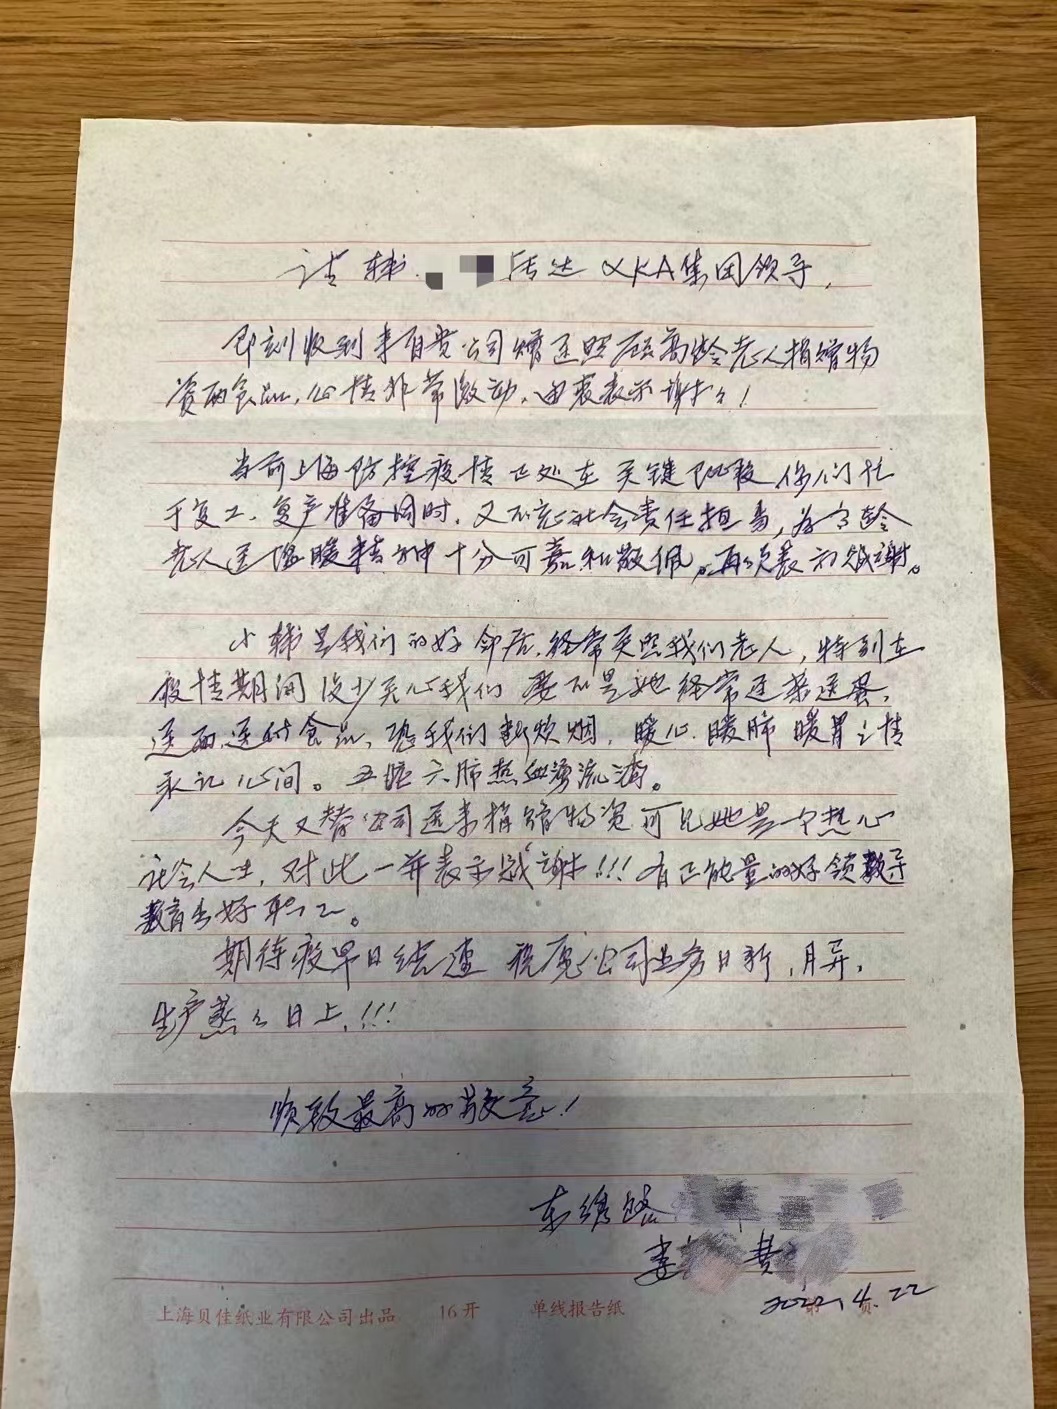 请韩 转达 OKA集团领导,
即刻收到来自贵公司赠送照顾高龄老人捐赠物
资两食品,心情非常激动,由衷表示谢谢!
当前上海防控疫情正处在关键阶段你们忙
于复工、复产准备同时,又不忘社会责任担当,为高龄
老人送温暖精神十分可嘉和敬佩。再次表示感谢。
小韩是我们的好邻居,经常关照我们老人,特别在
疫情期间没少关心我们 要不是她经常送菜送
送面送 食品,恐我们断炊烟,暖心、暖肺 暖胃之情
永记心间。五脏六肺热血涌流淌。
今天又替公司送来捐赠物资可见她是一个热心
社会人士,对此一并表示感谢!!!有正能量的好领导
教育出好职工。
期待疫早日结速 祝愿公司业务日新,月异,
生产蒸々日上,!!!
顺致最高的敬意!
东绣路
娄 黄
2022.4.22
上海贝佳纸业有限公司出品 16开 单线报告纸 第 页